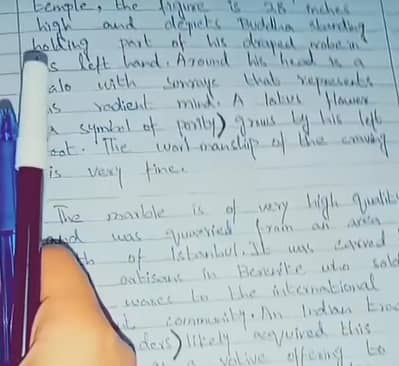 temple, the figure is 28 inches
high and depicts Buddha standing
holding part of his draped robe in
s left hand. Around his head is a
alo with sunrays that represents
is radient mind. A lotus flower
a symbol of purity) grows by his left
oot. The workmanship of the carving
is very fine.
The marble is of very high quality
and was quarried from an area
th of Istanbul. It was carved
artisans in Berenike who sold
wares to the international
community. An Indian trad
ders) likely acquired this
as a votive offering to